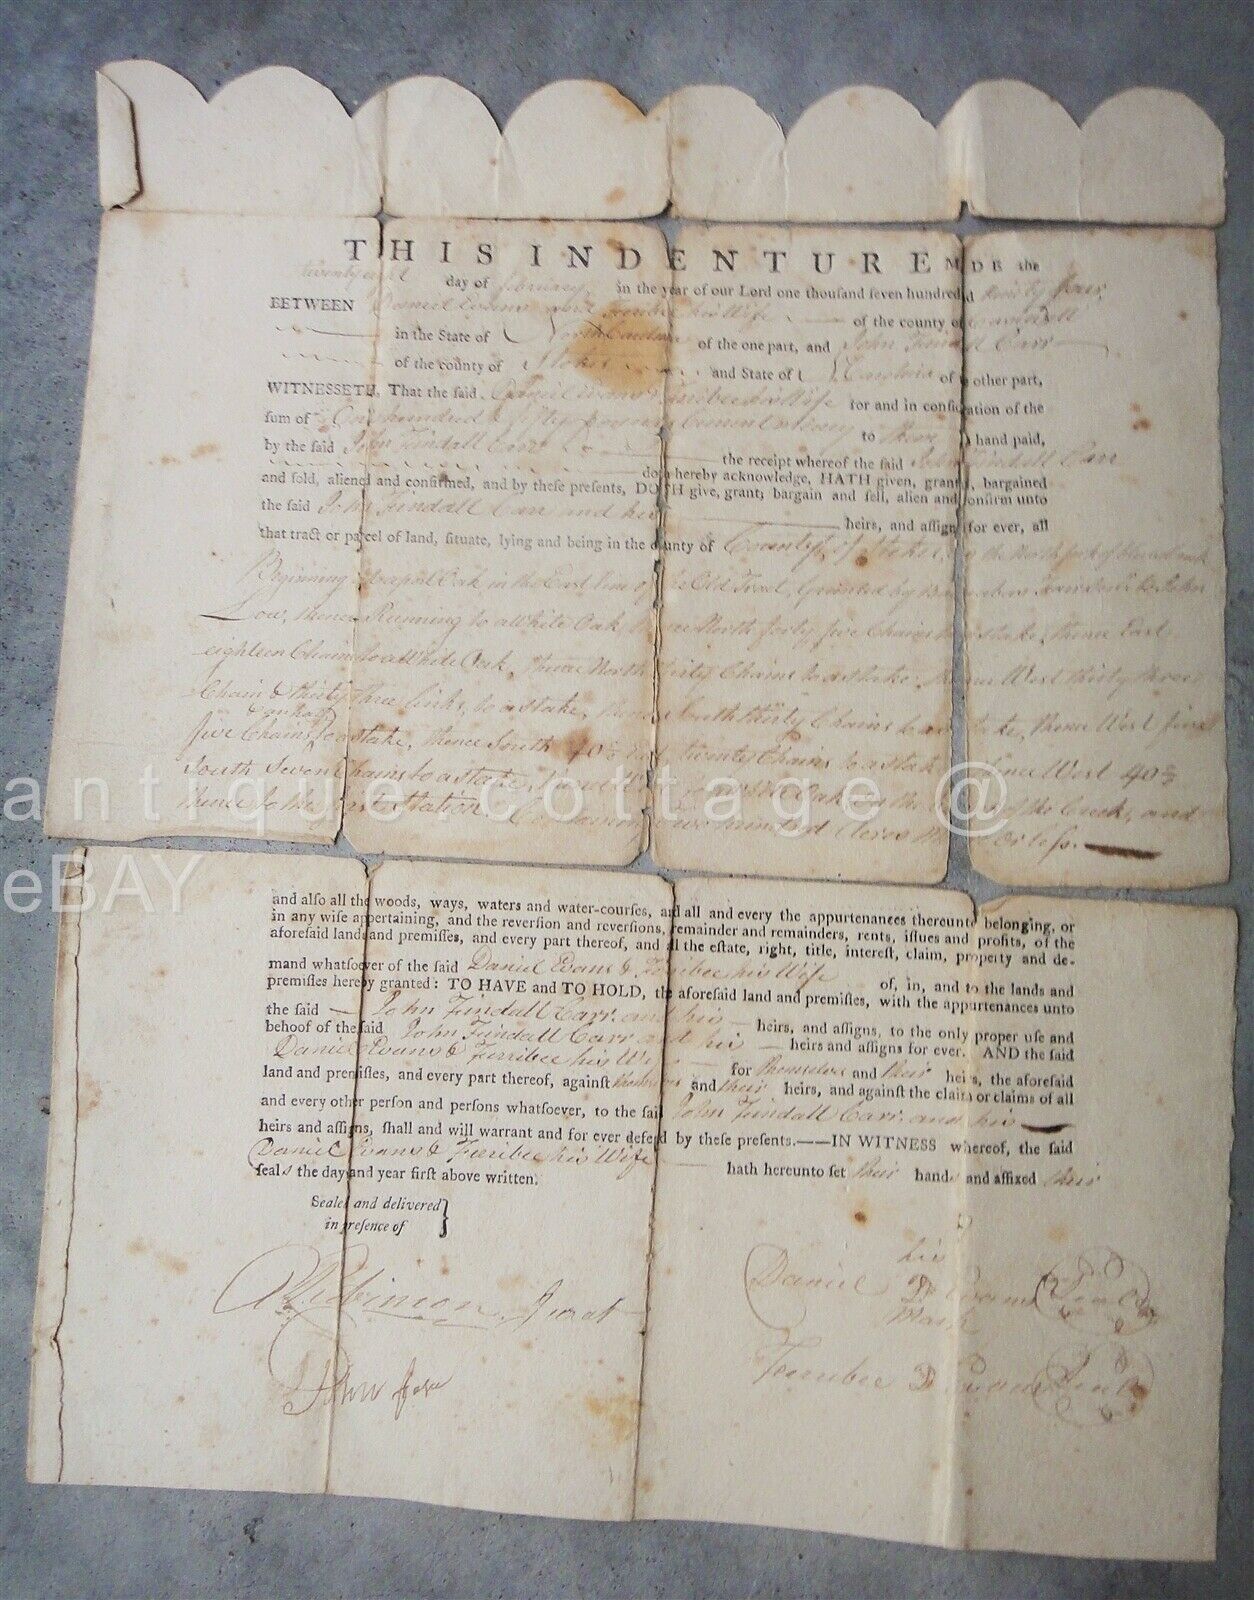 THIS INDENTURE MADE the
day of february in the year of our Lord one thouſand ſeven hundred Ninety four
BETWEEN Daniel Evans and Ferribee his Wife of the county of
in the State of North Carolina of the one part, and John Tindall Carr
of the county of Stokes and State of N Carolina of other part,
WITNESSETH, That the ſaid Daniel Evans & Ferribee his Wife for and in conſideration of the
ſum of One hundred & fifty pounds Current money to them in hand paid,
by the ſaid John Tindall Carr the receipt whereof the ſaid John Tindall Carr
doth hereby acknowledge, HATH given, granted, bargained
and ſold, aliened and confirmed, and by theſe preſents, DOTH give, grant, bargain and ſell, alien and confirm unto
the ſaid John Tindall Carr and his heirs, and aſſigns for ever, all
that tract or parcel of land, ſituate, lying and being in the county of County of Stokes, on the North fork of
Beginning at a post Oak in the East line of the Old Tract, Granted by to John
Low, thence Running to a White Oak, thence North forty five Chains to a stake, thence East
eighteen Chains to a White Oak, thence North thirty Chains to a stake, thence West thirty three
Chain & thirty three links, to a stake, thence South thirty Chains to a stake, thence West five
& an half
five Chains to a stake, thence South 40° East, twenty Chains to a stake thence West 40°
South Seven Chains to a stake, thence Oak on the of the Creek, and
thence to the first Station. Containing two hundred Acres more or less.
antique.cottage @
eBAY
and alſo all the woods, ways, waters and water-courſes, and all and every the appurtenances thereunto belonging, or
in any wiſe appertaining, and the reverſion and reverſions, remainder and remainders, rents, iſſues and profits, of the
aforeſaid land and premiſſes, and every part thereof, and all the eſtate, right, title, intereſt, claim, property and de-
mand whatſoever of the ſaid Daniel Evans & Ferribee his Wife of, in, and to the lands and
premiſſes hereby granted: TO HAVE and TO HOLD, the aforeſaid land and premiſſes, with the appurtenances unto
the ſaid John Tindall Carr and his heirs, and aſſigns, to the only proper uſe and
behoof of the ſaid John Tindall Carr and his heirs and aſſigns for ever. AND the ſaid
Daniel Evans & Ferribee his Wife for themselves and their heirs, the aforeſaid
land and premiſſes, and every part thereof, againſt themselves and their heirs, and againſt the claim or claims of all
and every other perſon and perſons whatſoever, to the ſaid John Tindall Carr and his
heirs and aſſigns, ſhall and will warrant and for ever defend by theſe preſents.——IN WITNESS whereof, the ſaid
Daniel Evans & Ferribee his Wife hath hereunto ſet their hands and affixed their
ſeals the day and year firſt above written.
Sealed and delivered
in preſence of }
Robinson Jurat
John
his
Daniel D Evans Seal
Mark
Ferribee D Evans Seal